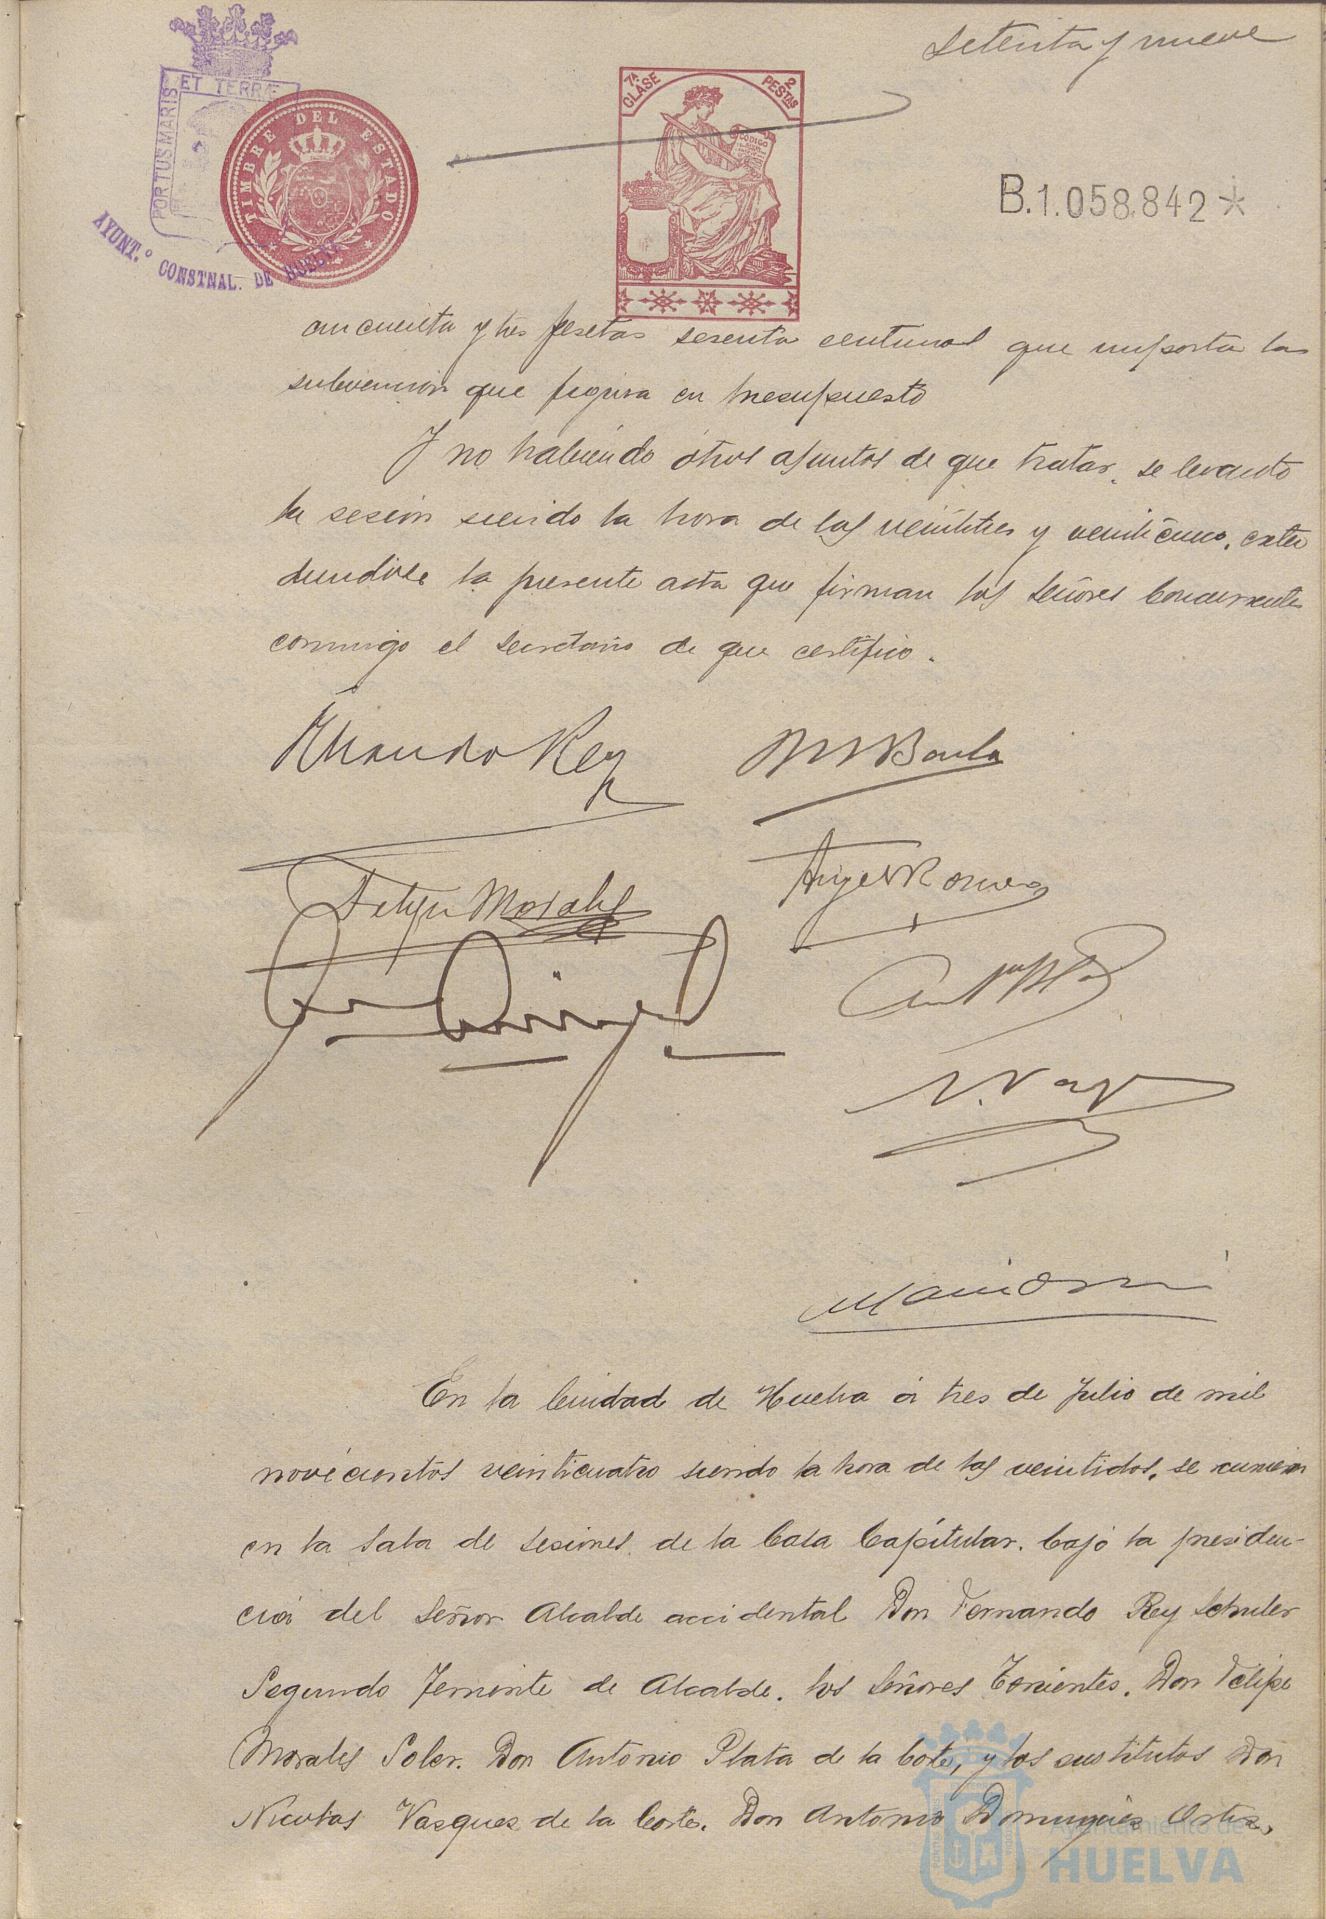 setenta y nueve
PORTUS MARIS ET TERRÆ
AYUNT.º CONSTNAL. DE HUELVA
TIMBRE DEL ESTADO
7ª CLASE
2 PESTAS
CODIGO
B.1.058.842*
cincuenta y tres pesetas sesenta centimos que importa la
subvención que figura en Presupuesto
Y no habiendo otros asuntos de que tratar, se levantó
la sesión siendo la hora de las veintitres y veinticinco, exten
diendose la presente acta que firman los Señores Concurrentes
conmigo el Secretario de que certifico.
Fernando Rey
Felipe Morales
Angel Romero
En la Ciudad de Huelva á tres de Julio de mil
novecientos veinticuatro siendo la hora de las veintidos, se reunieron
en la Sala de Sesiones de la Casa Capitular, bajo la presiden-
cia del Señor Alcalde accidental Don Fernando Rey Schuler
Segundo Teniente de Alcalde, los Señores Tenientes, Don Felipe
Morales Soler, Don Antonio Plata de la Corte, y los sustitutos Don
Nicolas Vazquez de la Corte, Don Antonio Dominguez Ortiz,
Ayuntamiento de
HUELVA